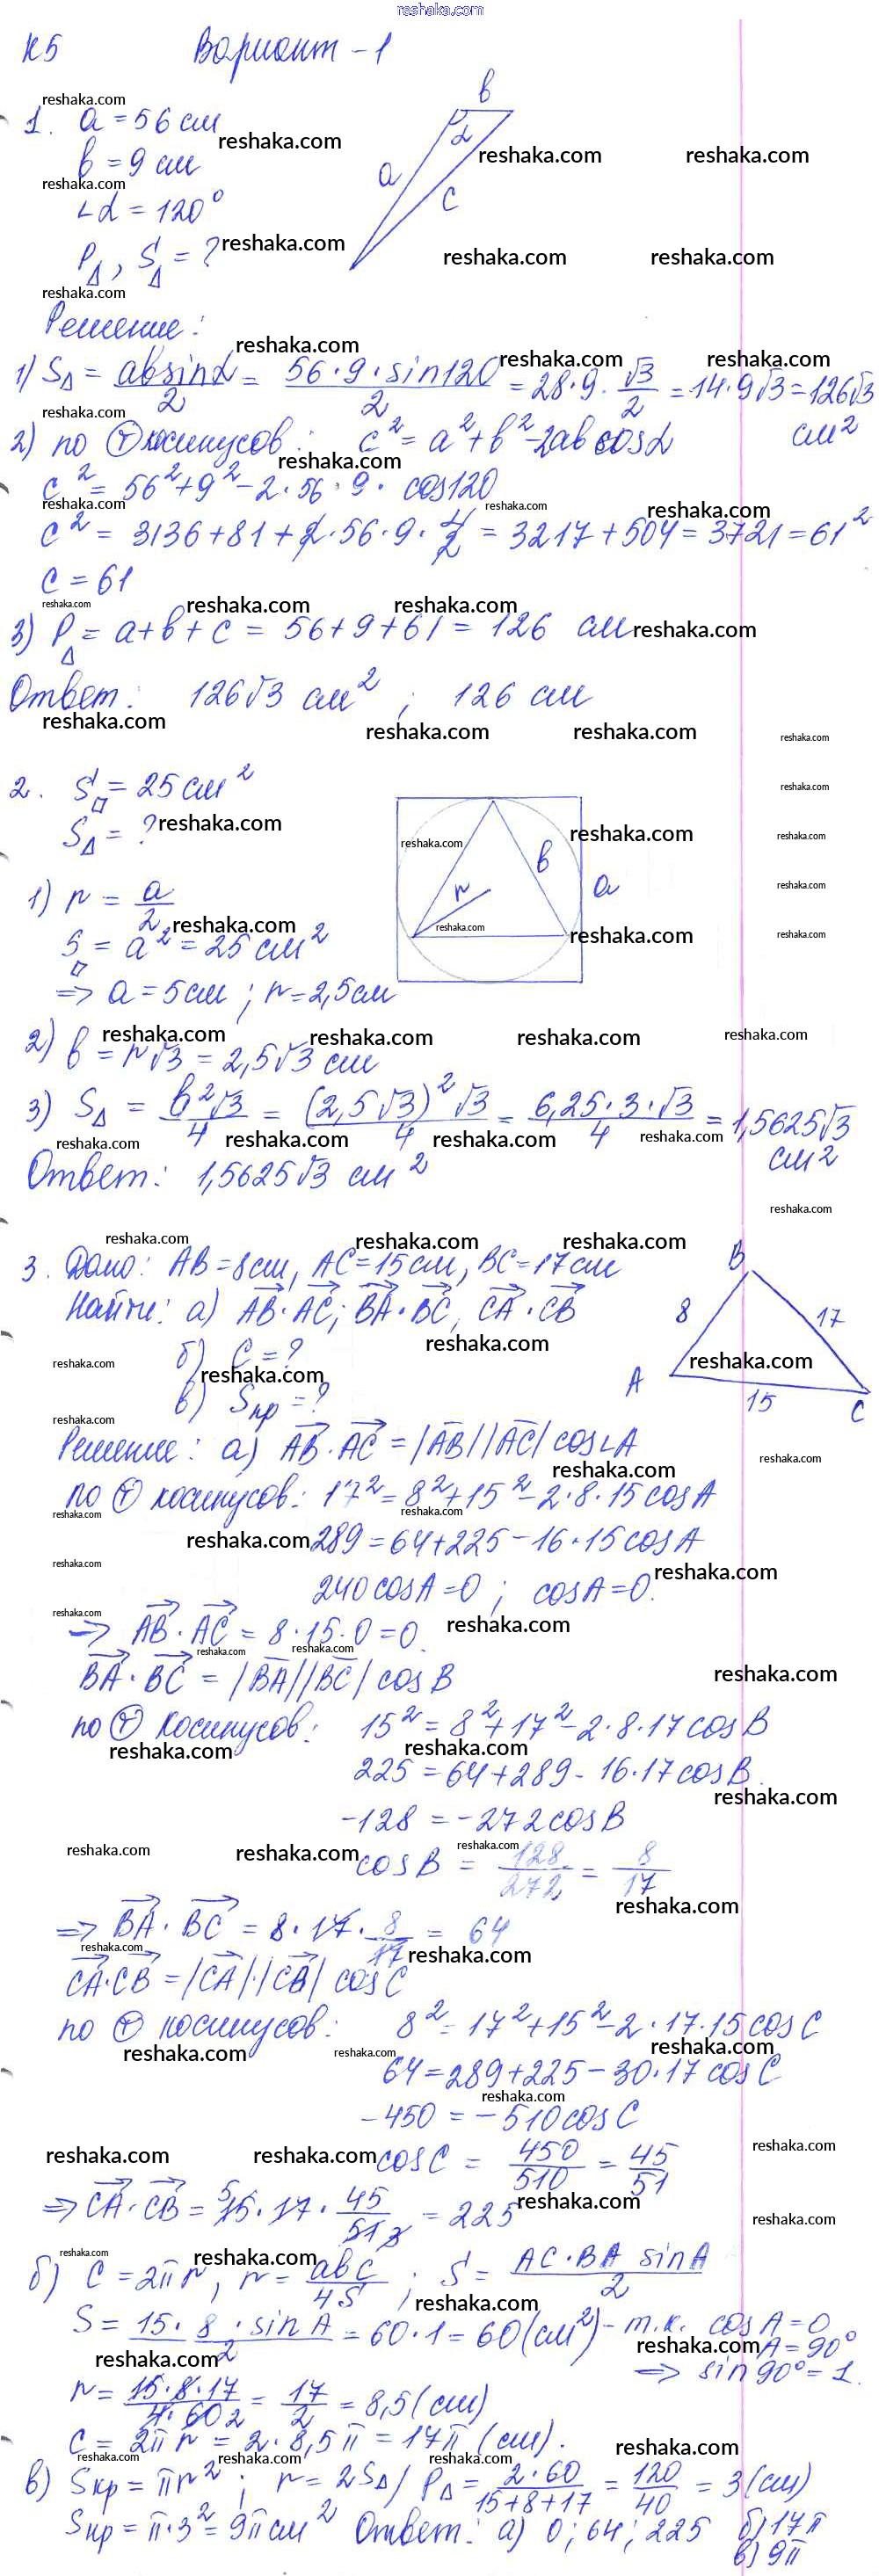 reshaka.com
К5 Вариант - 1
1. a = 56 см
b = 9 см
∠α = 120°
P△, S△ = ?
b
α
a
c
Решение:
1) S△ = ab sinα / 2 = 56·9·sin120 / 2 = 28·9·√3/2 = 14·9√3 = 126√3 см²
2) по Ⓣ косинусов: c² = a² + b² - 2ab cosα
c² = 56² + 9² - 2·56·9·cos120
c² = 3136 + 81 + 2·56·9·1/2 = 3217 + 504 = 3721 = 61²
c = 61
3) P△ = a + b + c = 56 + 9 + 61 = 126 см
Ответ: 126√3 см² ; 126 см
2. S□ = 25 см²
S△ = ?
r
b
a
1) r = a/2
S□ = a² = 25 см²
=> a = 5 см ; r = 2,5 см
2) b = r√3 = 2,5√3 см
3) S△ = b²√3 / 4 = (2,5√3)²√3 / 4 = 6,25·3·√3 / 4 = 1,5625√3 см²
Ответ: 1,5625√3 см²
3. Дано: AB = 8 см, AC = 15 см, BC = 17 см
Найти: а) AB·AC; BA·BC, CA·CB
б) C = ?
в) Sкр = ?
B
8
17
A
15
C
Решение: а) AB·AC = |AB||AC| cos∠A
по Ⓣ косинусов: 17² = 8² + 15² - 2·8·15 cosA
289 = 64 + 225 - 16·15 cosA
240 cosA = 0 ; cosA = 0.
=> AB·AC = 8·15·0 = 0.
BA·BC = |BA||BC| cosB
по Ⓣ косинусов: 15² = 8² + 17² - 2·8·17 cosB
225 = 64 + 289 - 16·17 cosB.
-128 = -272 cosB
cosB = 128/272 = 8/17
=> BA·BC = 8·17·8/17 = 64
CA·CB = |CA|·|CB| cosC
по Ⓣ косинусов: 8² = 17² + 15² - 2·17·15 cosC
64 = 289 + 225 - 30·17 cosC
-450 = -510 cosC
cosC = 450/510 = 45/51
=> CA·CB = 15·17·45/51 = 225
б) C = 2πr, r = abc/4S ; S = AC·BA sinA / 2
S = 15·8·sinA / 2 = 60·1 = 60 (см²) - т.к. cosA = 0
A = 90°
=> sin90° = 1.
r = 15·8·17 / 4·60 = 17/2 = 8,5 (см)
C = 2πr = 2·8,5π = 17π (см).
в) Sкр = πr² ; r = 2S△/P△ = 2·60 / 15+8+17 = 120/40 = 3 (см)
Sкр = π·3² = 9π см² Ответ: а) 0; 64; 225 б) 17π
в) 9π